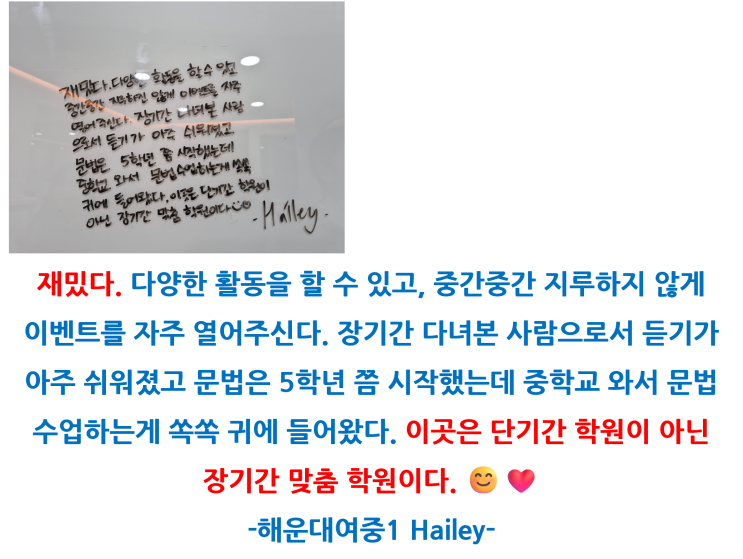 재밌다. 다양한 활동을 할 수 있고
중간중간 지루하지 않게 이벤트를 자주
열어주신다. 장기간 다녀본 사람
으로서 듣기가 아주 쉬워졌고
문법은 5학년 쯤 시작했는데
중학교 와서 문법수업하는게 쏙쏙
귀에 들어왔다. 이곳은 단기간 학원이
아닌 장기간 맞춤 학원이다
-Hailey-
재밌다. 다양한 활동을 할 수 있고, 중간중간 지루하지 않게
이벤트를 자주 열어주신다. 장기간 다녀본 사람으로서 듣기가
아주 쉬워졌고 문법은 5학년 쯤 시작했는데 중학교 와서 문법
수업하는게 쏙쏙 귀에 들어왔다. 이곳은 단기간 학원이 아닌
장기간 맞춤 학원이다. 😊 ❤️
-해운대여중1 Hailey-